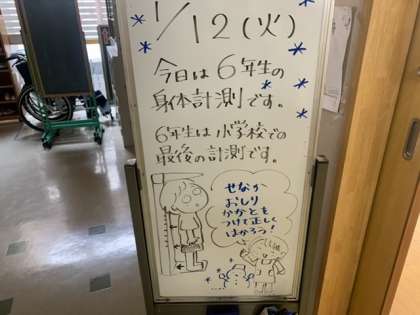 1/12(火)
今日は6年生の
身体計測です。
6年生は小学校での
最後の計測です。
せなか
おしり
かかとを
つけて正しく
はかろう!